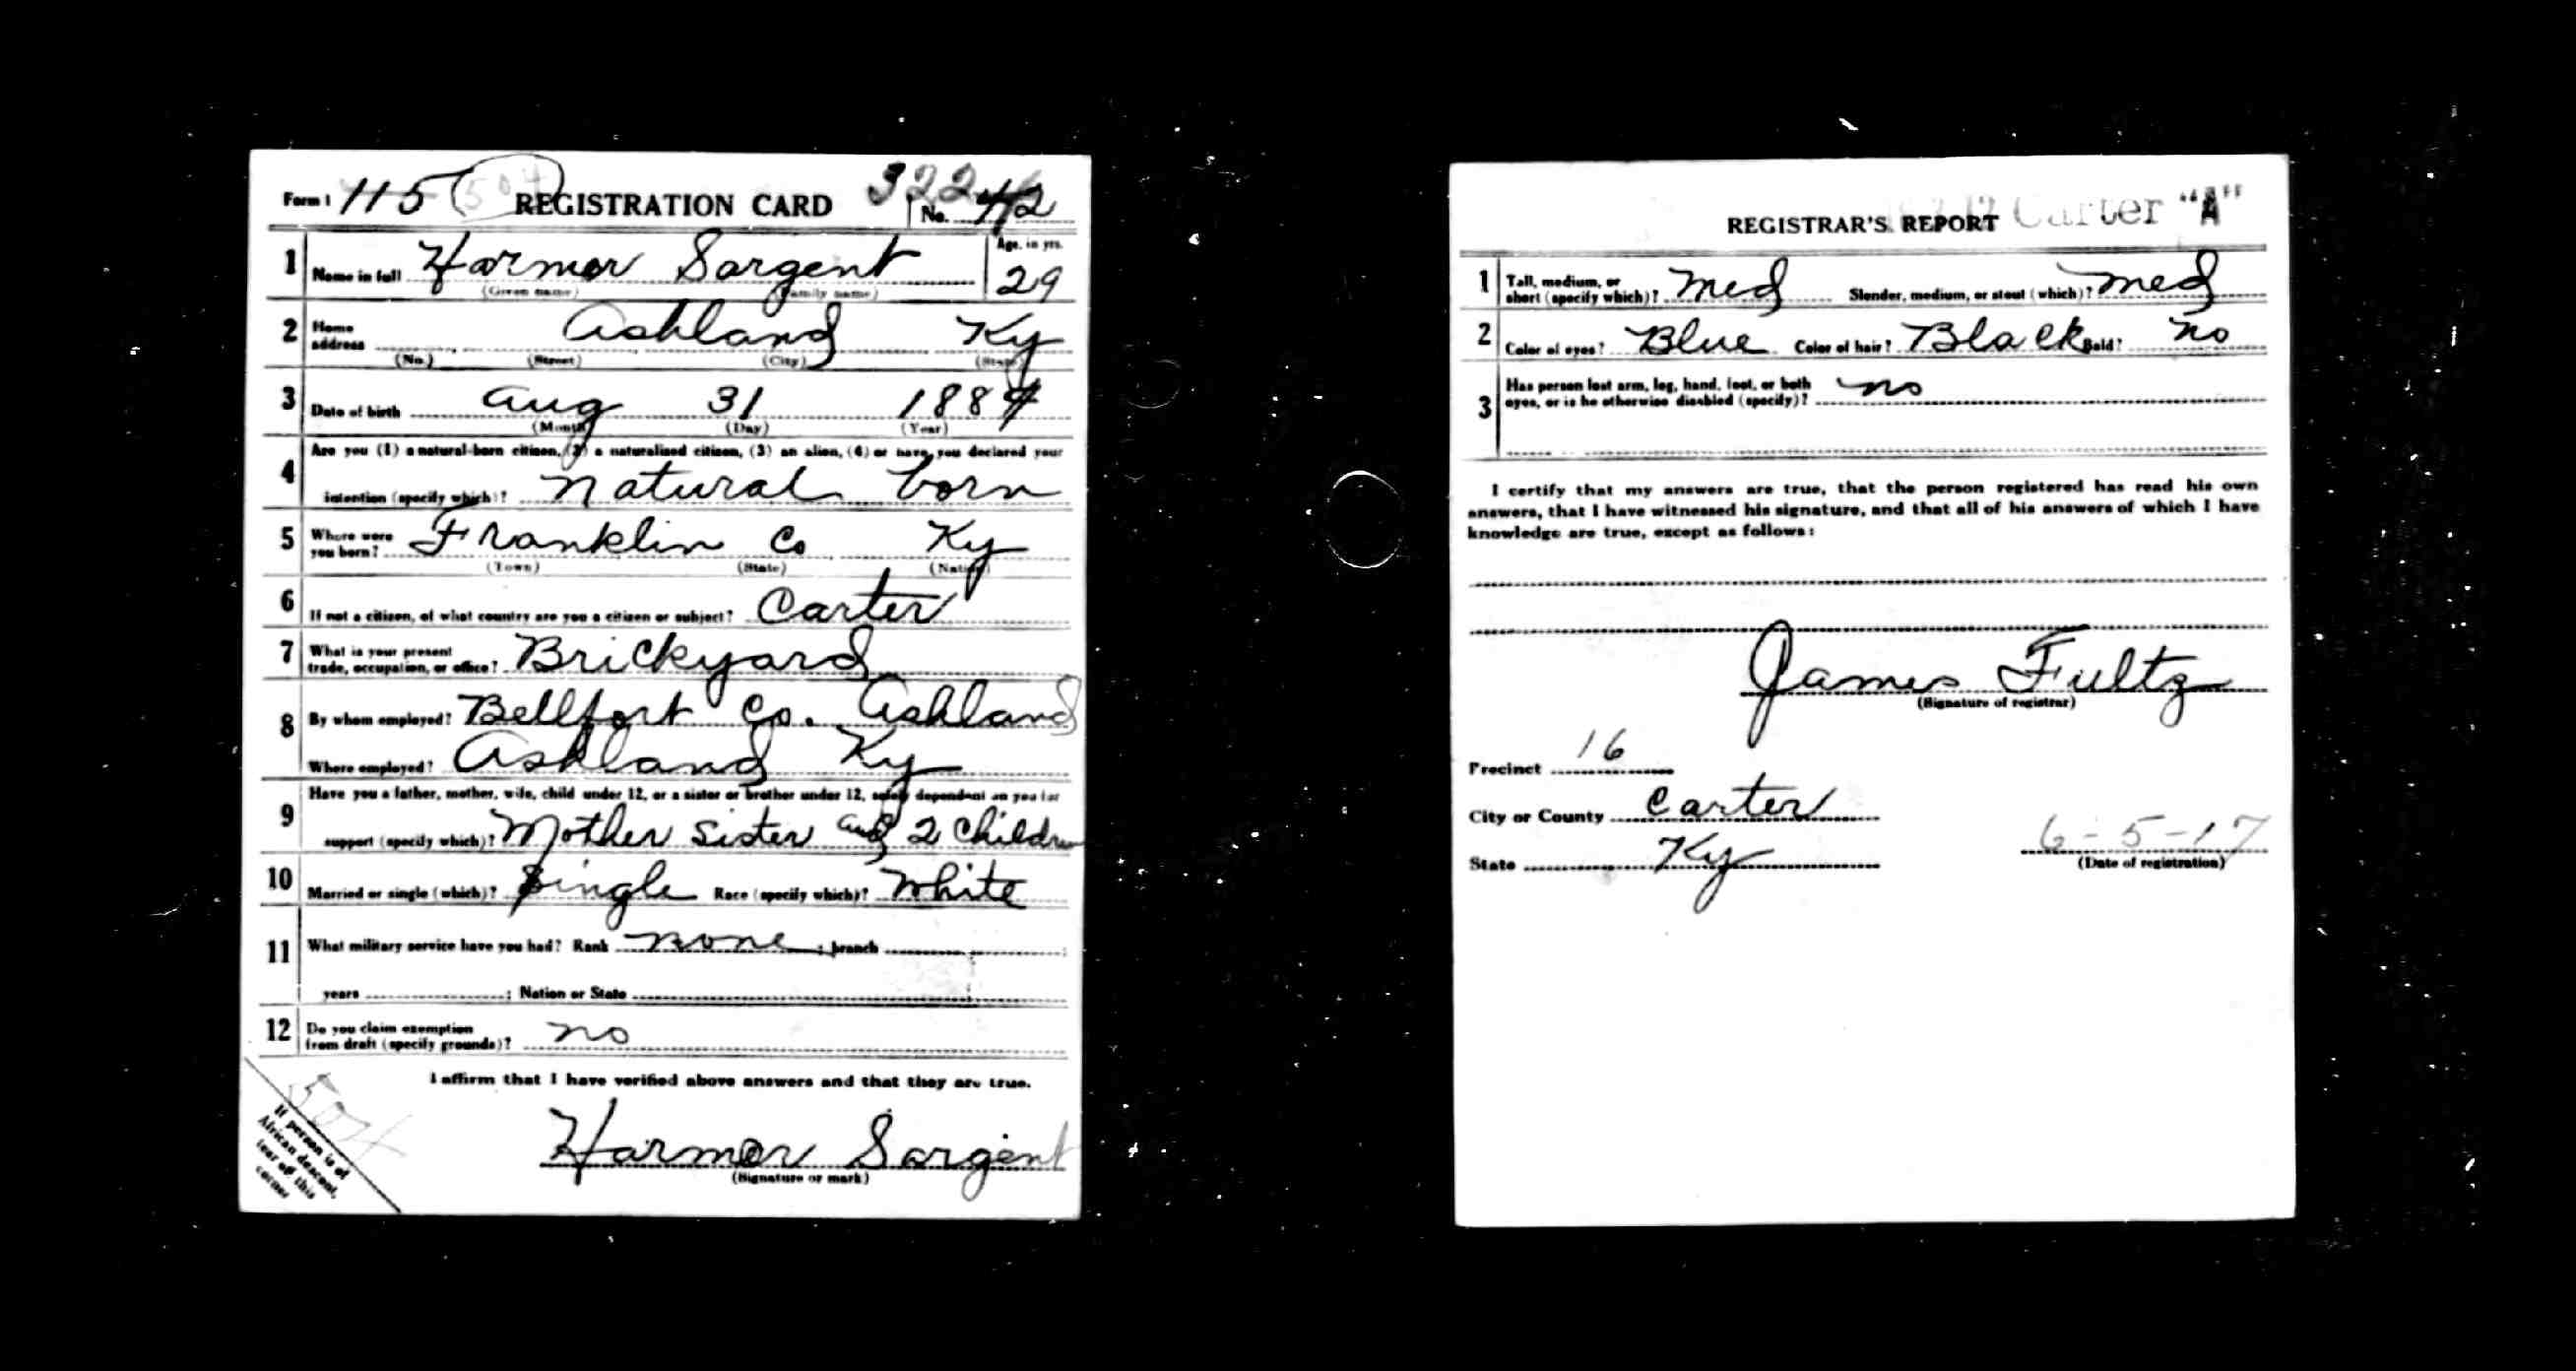 Form 1 115 504 REGISTRATION CARD 322 No. 42
1 Name in full Harmer Sargent Age, in yrs. 29
(Given name) (Family name)
2 Home address Ashland Ky
(No.) (Street) (City) (State)
3 Date of birth Aug 31 1889
(Month) (Day) (Year)
4 Are you (1) a natural-born citizen, (2) a naturalized citizen, (3) an alien, (4) or have you declared your
intention (specify which)? Natural born
5 Where were you born? Franklin Co Ky
(Town) (State) (Nation)
6 If not a citizen, of what country are you a citizen or subject? Carter
7 What is your present trade, occupation, or office? Brickyard
8 By whom employed? Bellfort Co. Ashland
Where employed? Ashland Ky
9 Have you a father, mother, wife, child under 12, or a sister or brother under 12, solely dependent on you for
support (specify which)? Mother Sister and 2 Children
10 Married or single (which)? Single Race (specify which)? White
11 What military service have you had? Rank none ; branch ;
years ; Nation or State
12 Do you claim exemption from draft (specify grounds)? no
I affirm that I have verified above answers and that they are true.
Harmer Sargent
(Signature or mark)
504
If person is of
African descent,
tear off this
corner
REGISTRAR'S REPORT Carter "A"
1 Tall, medium, or short (specify which)? Med Slender, medium, or stout (which)? Med
2 Color of eyes? Blue Color of hair? Black Bald? no
3 Has person lost arm, leg, hand, foot, or both
eyes, or is he otherwise disabled (specify)? no
I certify that my answers are true, that the person registered has read his own
answers, that I have witnessed his signature, and that all of his answers of which I have
knowledge are true, except as follows:
James Fultz
(Signature of registrar)
Precinct 16
City or County Carter
State Ky 6-5-17
(Date of registration)